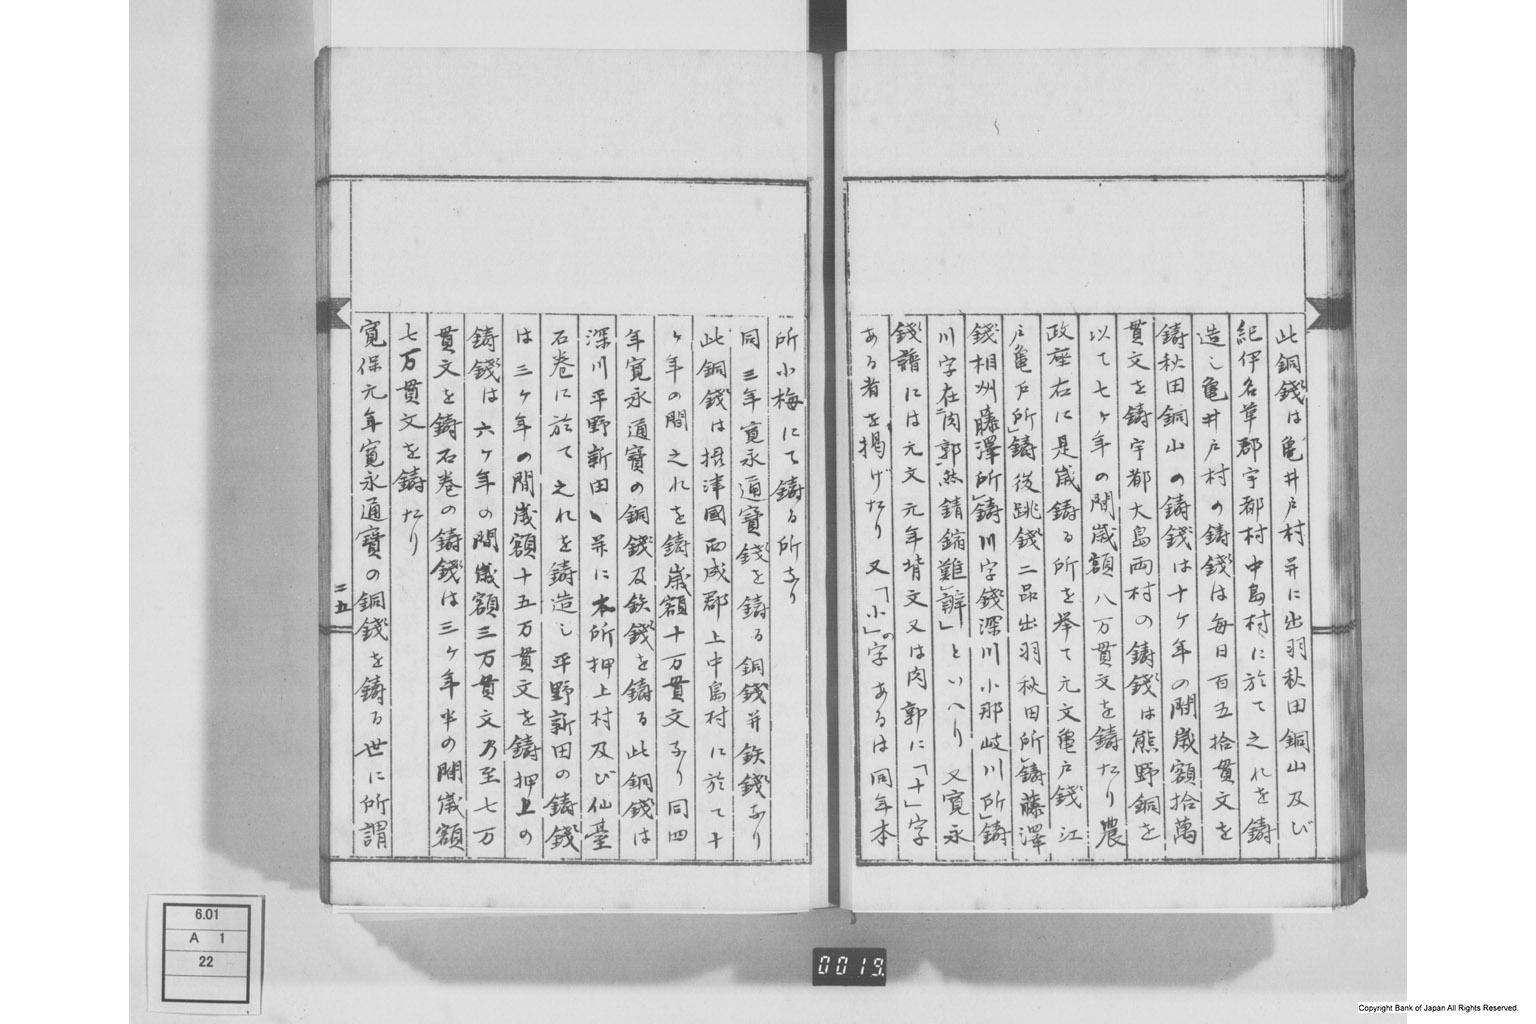 此銅錢は亀井戸村并に出羽秋田銅山及び
紀伊名草郡宇都村中島村に於て之れを鋳
造し亀井戸村の鋳錢は毎日百五拾貫文を
鋳秋田銅山の鋳錢は十ヶ年の間歳額拾萬
貫文を鋳宇都大島両村の鋳錢は熊野銅を
以て七ヶ年の間歳額八万貫文を鋳たり農
政座右に是歳鋳る所を挙て元文亀戸錢江
戸亀戸所」鋳後跳錢二品出羽秋田所」鋳藤澤
錢相州藤澤所」鋳川字錢深川小那岐川所」鋳
川字在「肉郭」然錆縮難」辨」といへり又寛永
錢譜には元文元年背文又は肉郭に「十」字
ある者を掲げたり又「小」の字あるは同年本
所小梅にて鋳る所なり
同三年寛永通寶錢を鋳る銅錢并鉄錢あり
此銅錢は摂津國西成郡上中島村に於て十
ヶ年の間之れを鋳歳額十万貫文なり同四
年寛永通寶の銅錢及鉄錢を鋳る此銅錢は
深川平野新田、并に本所押上村及び仙臺
石巻に於て之れを鋳造し平野新田の鋳錢
は三ヶ年の間歳額十五万貫文を鋳押上の
鋳錢は六ヶ年の間歳額三万貫文乃至七万
貫文を鋳石巻の鋳錢は三ヶ年半の間歳額
七万貫文を鋳たり
寛保元年寛永通寶の銅錢を鋳る世に所謂
二五
6.01
A 1
22
0019.
Copyright Bank of Japan All Rights Reserved.